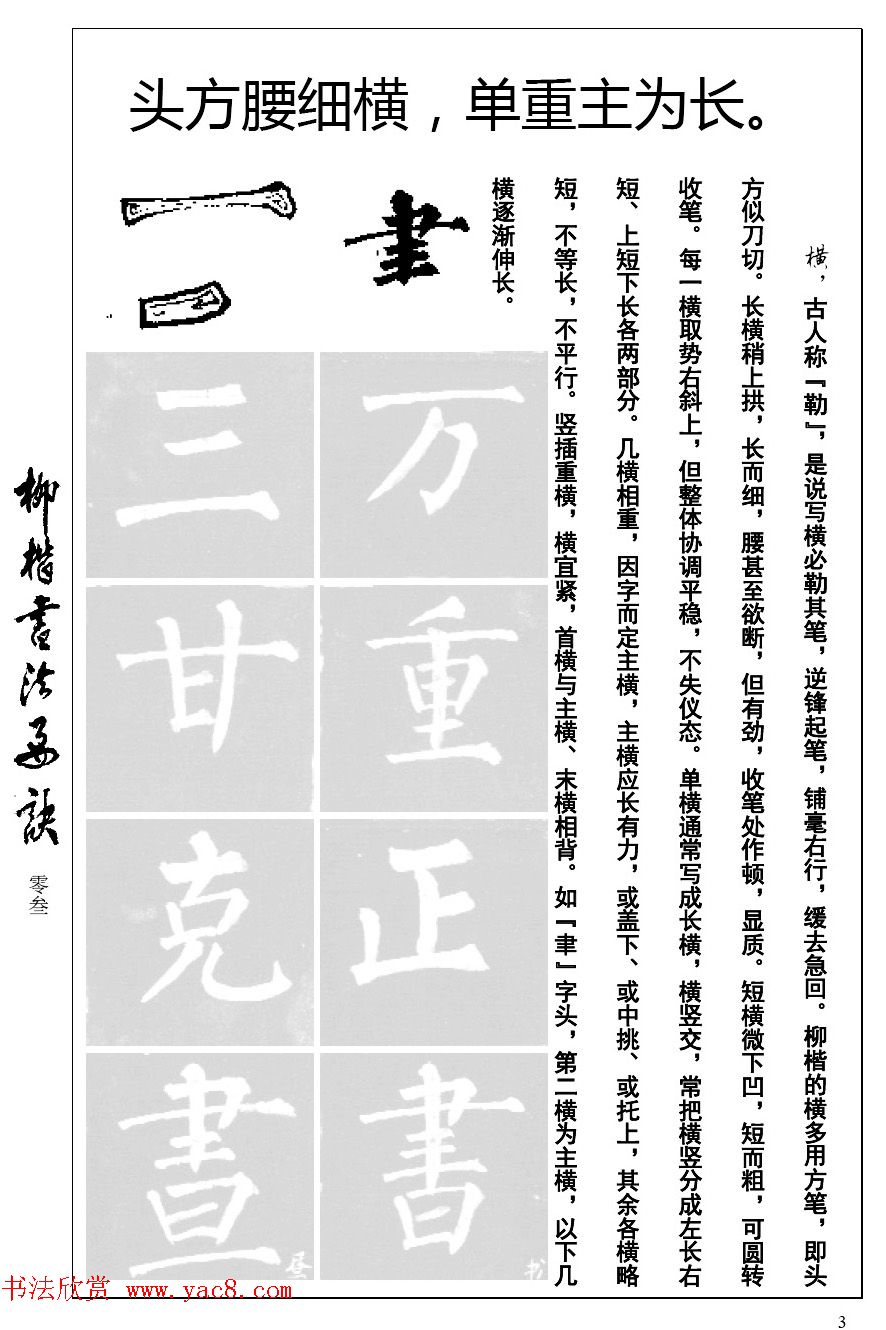 头方腰细横，单重主为长。
横，古人称『勒』，是说写横必勒其笔，逆锋起笔，铺毫右行，缓去急回。柳楷的横多用方笔，即头
方似刀切。长横稍上拱，长而细，腰甚至欲断，但有劲，收笔处作顿，显质。短横微下凹，短而粗，可圆转
收笔。每一横取势右斜上，但整体协调平稳，不失仪态。单横通常写成长横，横竖交，常把横竖分成左长右
短、上短下长各两部分。几横相重，因字而定主横，主横应长有力，或盖下、或中挑、或托上，其余各横略
短，不等长，不平行。竖插重横，横宜紧，首横与主横、末横相背。如『聿』字头，第二横为主横，以下几
横逐渐伸长。
聿
万
三
重
甘
正
克
書
书
晝
昼
柳楷书法要诀
零叁
书法欣赏 www.yac8.com
3